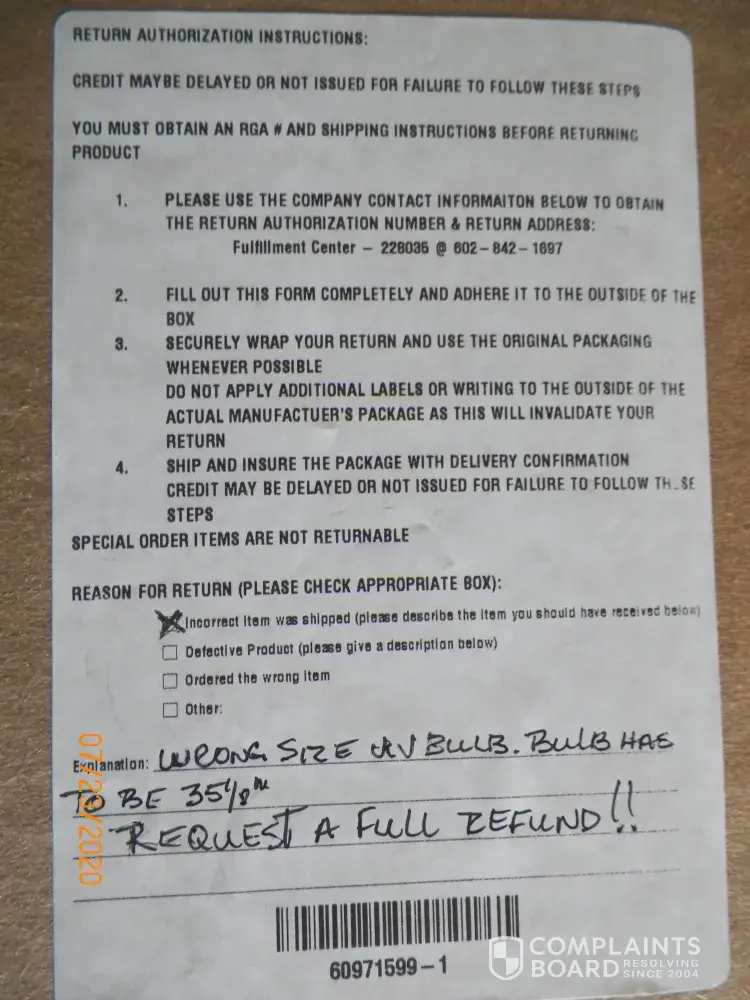 RETURN AUTHORIZATION INSTRUCTIONS:
CREDIT MAYBE DELAYED OR NOT ISSUED FOR FAILURE TO FOLLOW THESE STEPS
YOU MUST OBTAIN AN RGA # AND SHIPPING INSTRUCTIONS BEFORE RETURNING
PRODUCT
1. PLEASE USE THE COMPANY CONTACT INFORMAITON BELOW TO OBTAIN
THE RETURN AUTHORIZATION NUMBER & RETURN ADDRESS:
Fulfillment Center – 228035 @ 602-842-1697
2. FILL OUT THIS FORM COMPLETELY AND ADHERE IT TO THE OUTSIDE OF THE
BOX
3. SECURELY WRAP YOUR RETURN AND USE THE ORIGINAL PACKAGING
WHENEVER POSSIBLE
DO NOT APPLY ADDITIONAL LABELS OR WRITING TO THE OUTSIDE OF THE
ACTUAL MANUFACTUER'S PACKAGE AS THIS WILL INVALIDATE YOUR
RETURN
4. SHIP AND INSURE THE PACKAGE WITH DELIVERY CONFIRMATION
CREDIT MAY BE DELAYED OR NOT ISSUED FOR FAILURE TO FOLLOW THESE
STEPS
SPECIAL ORDER ITEMS ARE NOT RETURNABLE
REASON FOR RETURN (PLEASE CHECK APPROPRIATE BOX):
Incorrect item was shipped (please describe the item you should have received below)
Defective Product (please give a description below)
Ordered the wrong item
Other:
Explanation: WRONG SIZE UV BULB. BULB HAS
TO BE 35 1/8 IN
REQUEST A FULL REFUND!!
60971599-1
COMPLAINTS
BOARD RESOLVING SINCE 2004